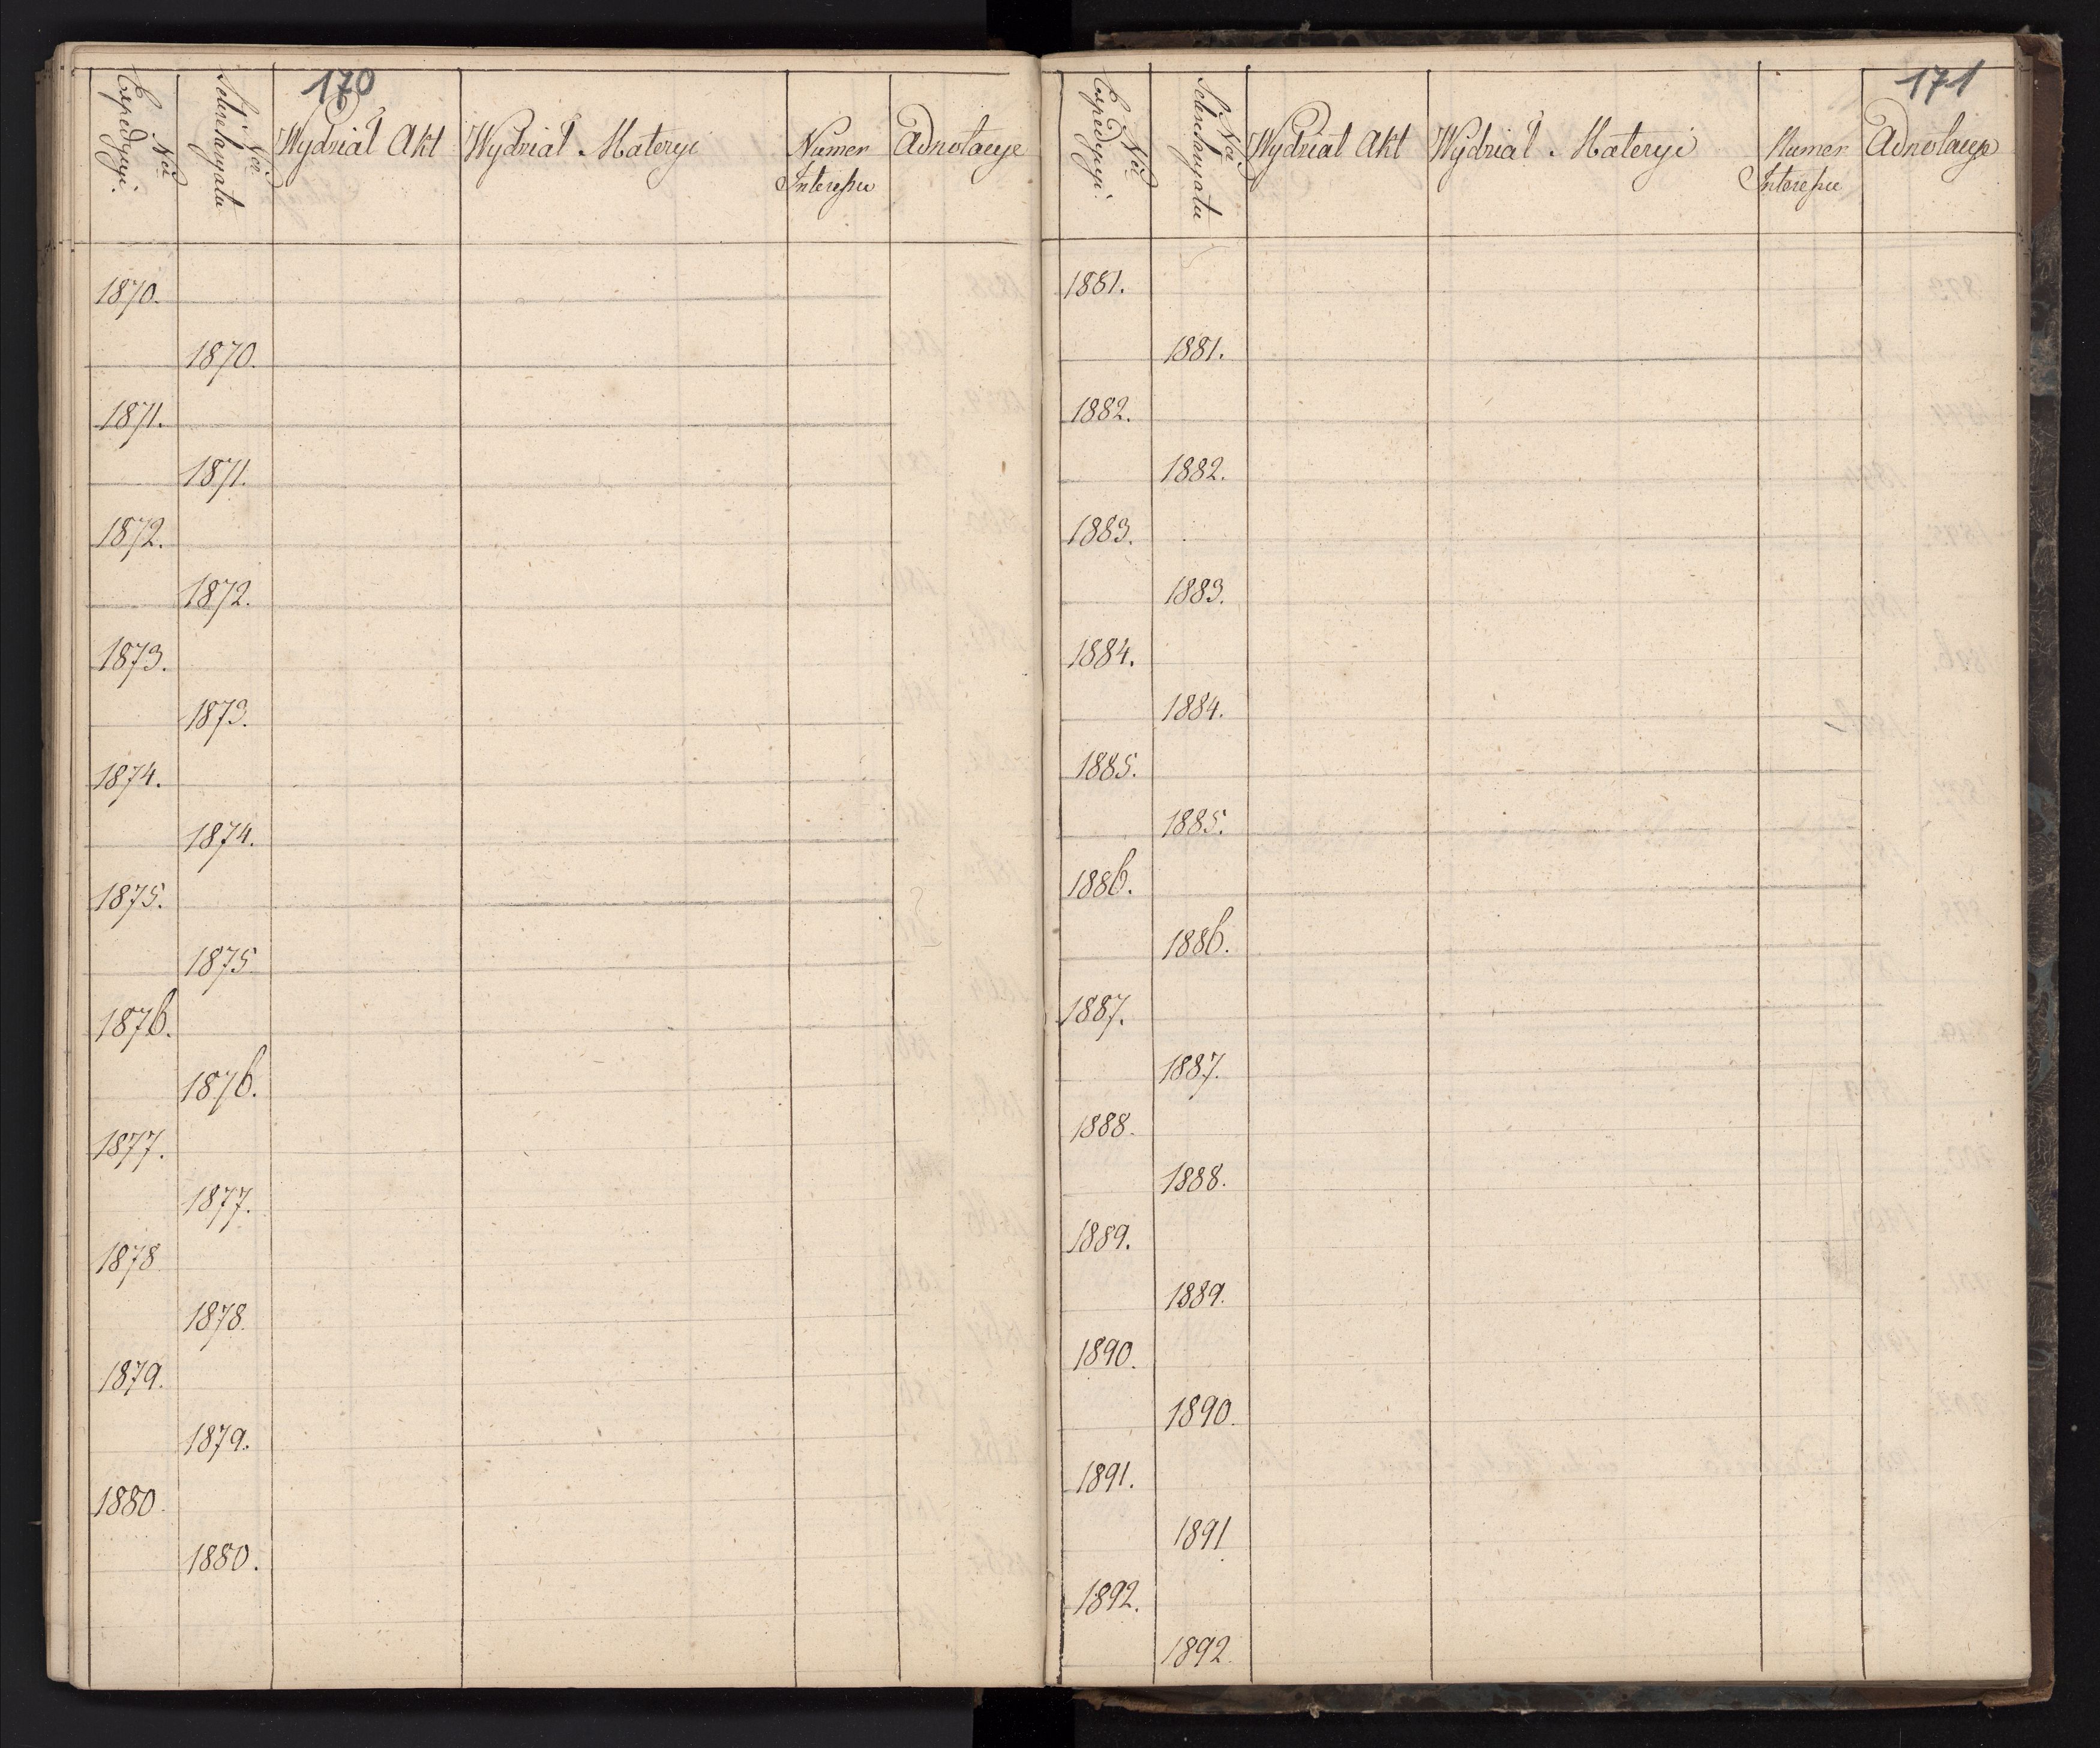 170
Nro Expedycyi.
Nro Sekretaryatu
Wydział Akt
Wydział Materyi
Numer Interessu
Adnotacye
1870.
1870.
1871.
1871.
1872.
1872.
1873.
1873.
1874.
1874.
1875.
1875.
1876.
1876.
1877.
1877.
1878
1878
1879.
1879.
1880
1880.
171
Nro Expedycyi.
Nro Sekretaryatu
Wydział Akt
Wydział Materyi
Numer Interessu
Adnotacye
1881.
1881.
1882.
1882.
1883.
1883.
1884.
1884.
1885.
1885.
1886.
1886.
1887.
1887.
1888.
1888.
1889.
1889.
1890.
1890.
1891.
1891
1892.
1892